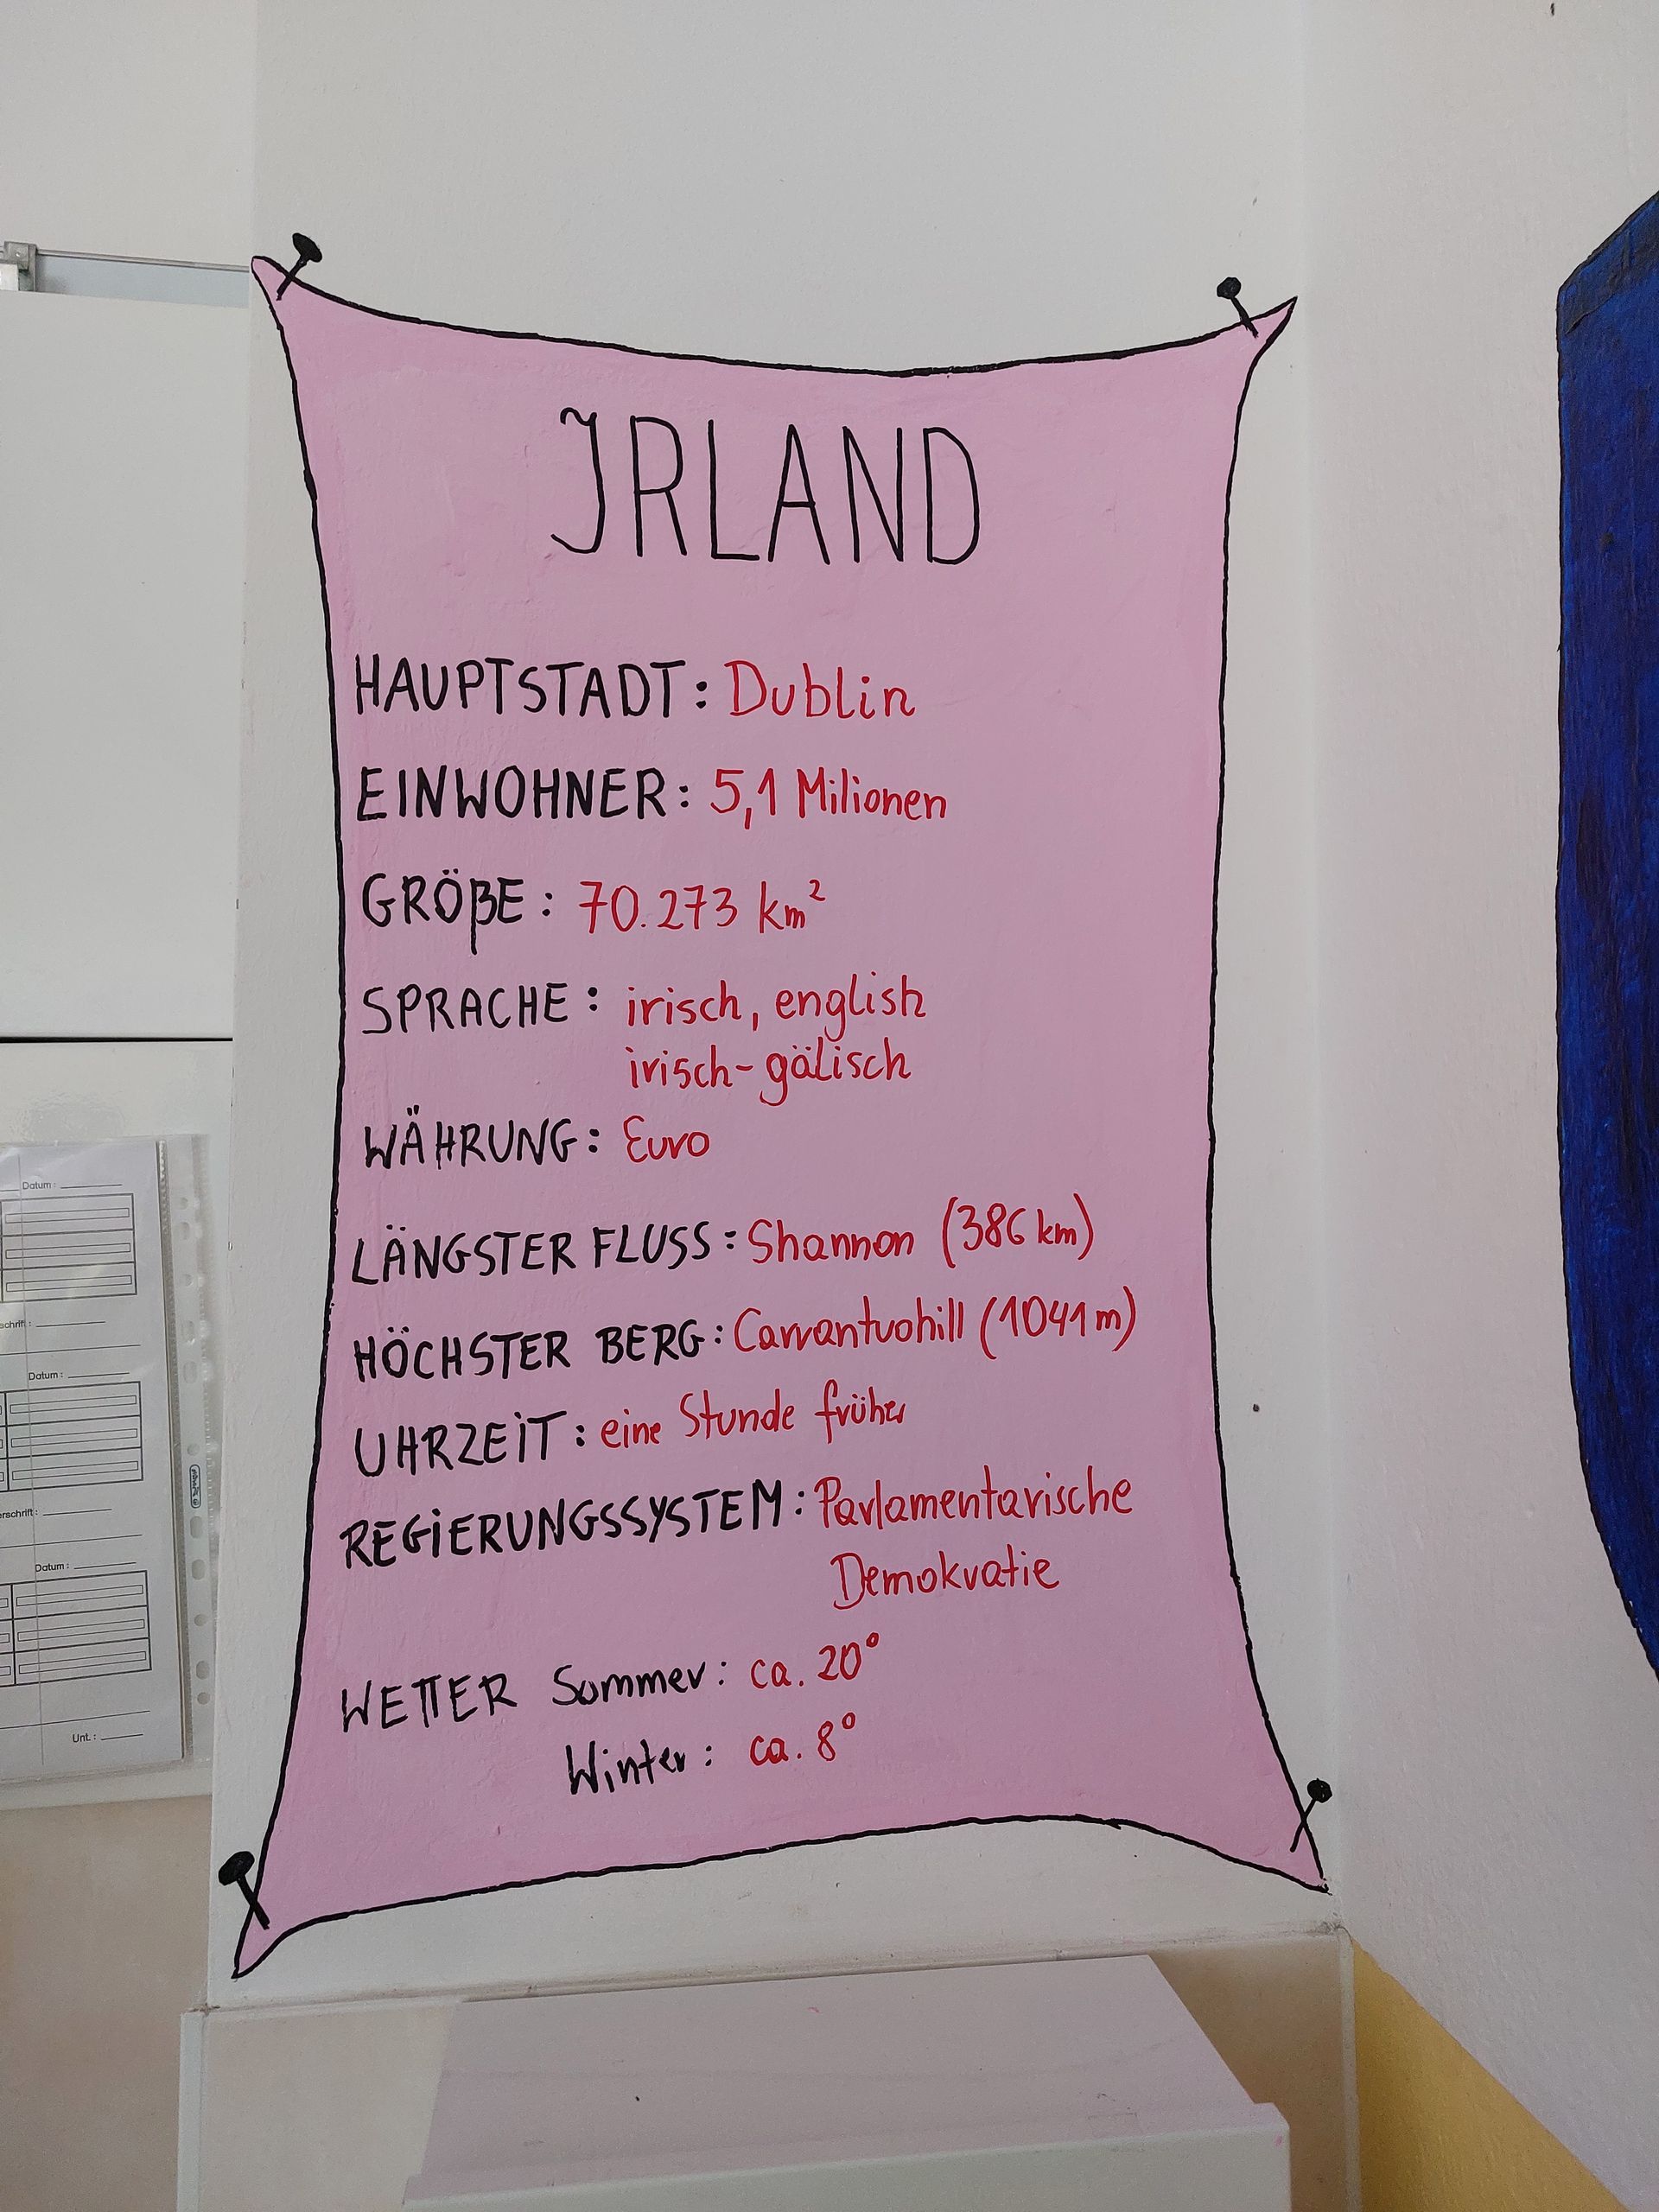 IRLAND
HAUPTSTADT: Dublin
EINWOHNER: 5,1 Milionen
GRÖßE: 70.273 km²
SPRACHE: irisch, english
irisch-gälisch
WÄHRUNG: Euro
LÄNGSTER FLUSS: Shannon (386 km)
HÖCHSTER BERG: Carrantuohill (1041 m)
UHRZEIT: eine Stunde früher
REGIERUNGSSYSTEM: Parlamentarische
Demokratie
WETTER Sommer: ca. 20°
Winter: ca. 8°
Datum:
Datum:
erschrift:
Datum:
Unt.: